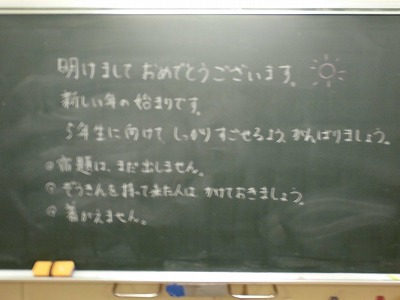 明けまして おめでとうございます。
新しい年の始まりです。
5年生に向けて しっかりすごせるよう、がんばりましょう。
◎宿題は、まだ出しません。
◎ぞうきんを持って来た人は かけておきましょう。
◎着がえません。